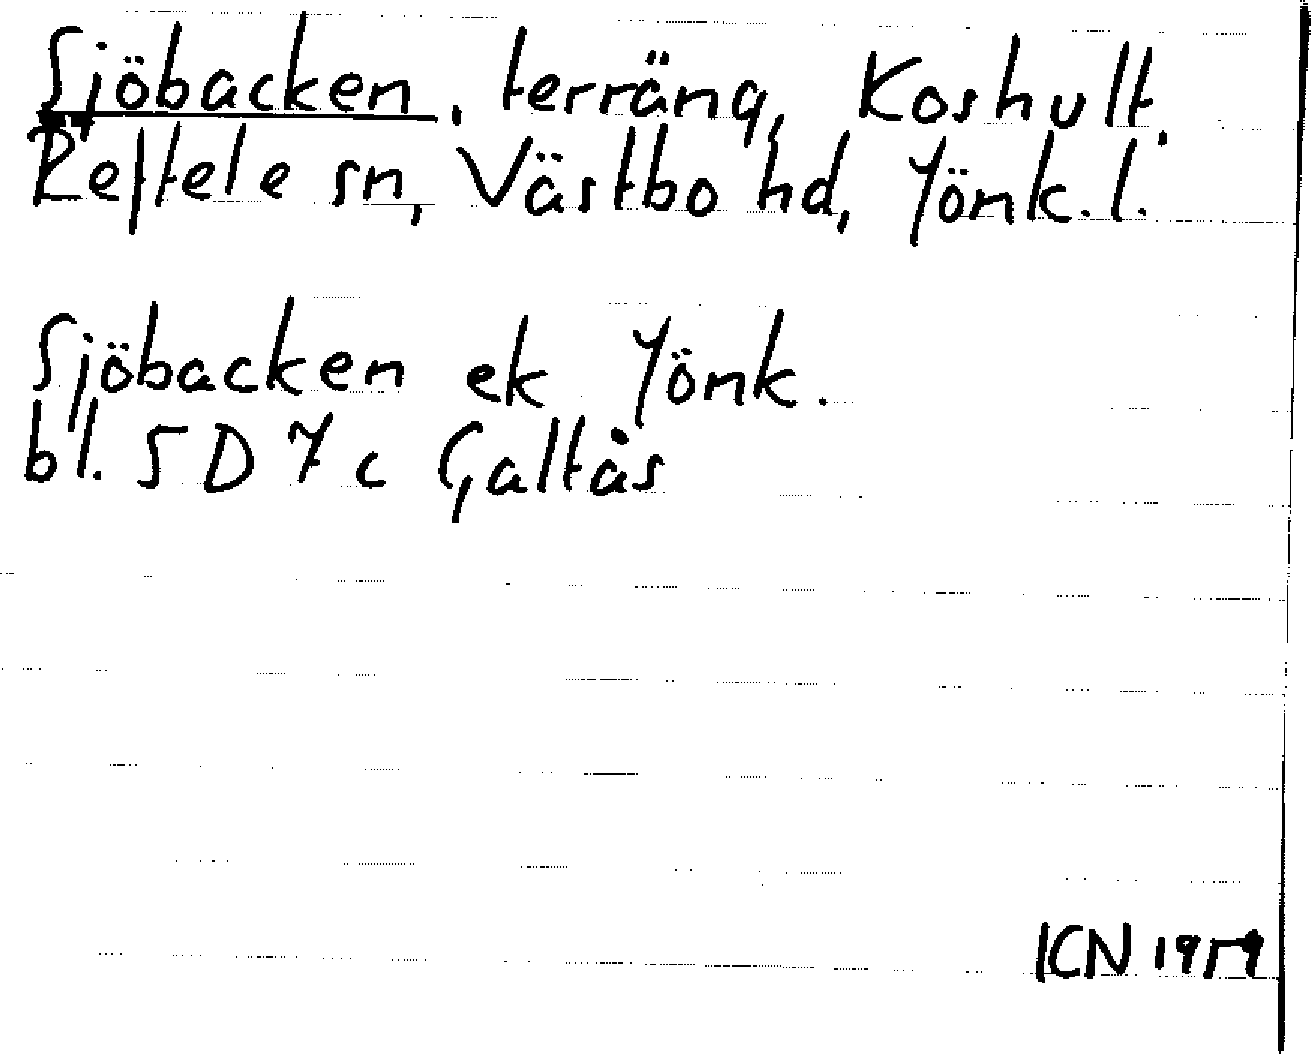 Sjöbacken, terräng, Koshult,
Reftele sn, Västbo hd, Jönk. l.
Sjöbacken ek Jönk.
bl. 5D 7c Galtås
ICN 1959